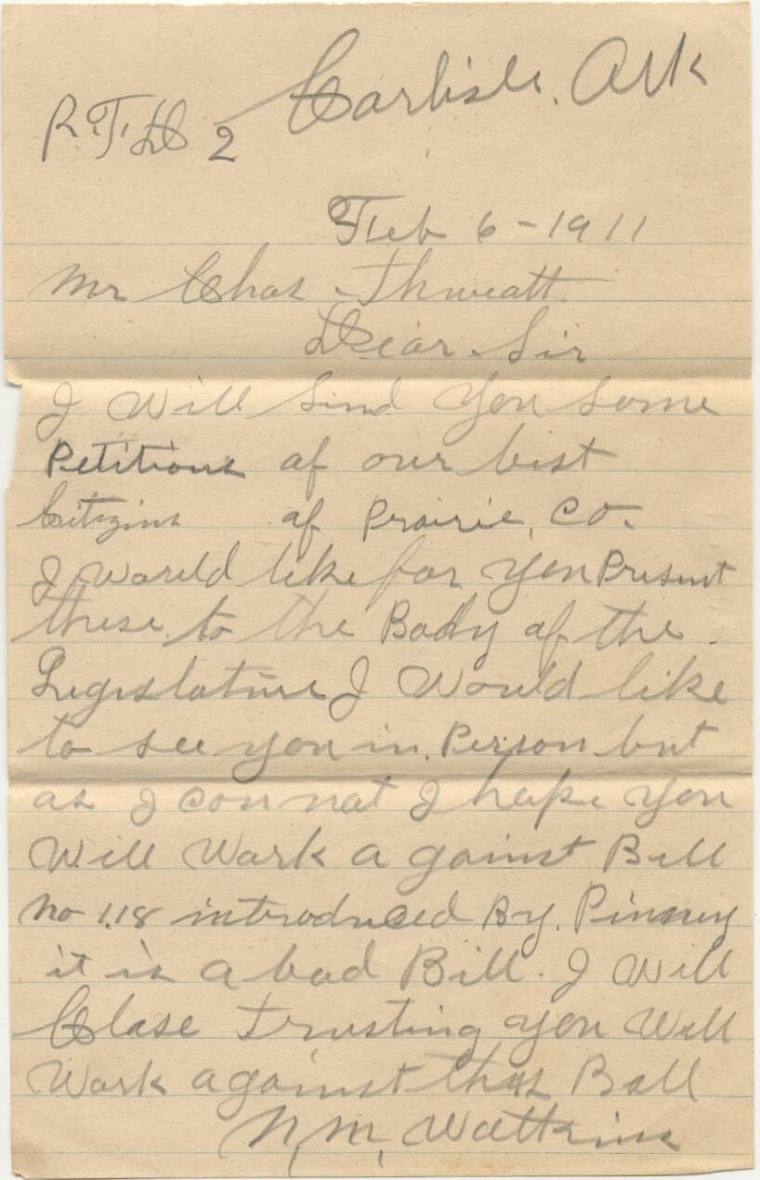 Carlisle, Ark
R.F.D 2
Feb 6-1911
Mr Chas Thweatt
Dear Sir
I Will Send You Some
Petitions of our best
Citizins of Prairie, Co.
I Would like for you Present
these to the Body of the
Legislature I Would like
to see you in Person but
as I con not I hope you
Will Work a gainst Bill
No 118 introduced By, Pinney
it is a bad Bill. I Will
Close trusting you Will
Work against this Bill
N, M, Watkins